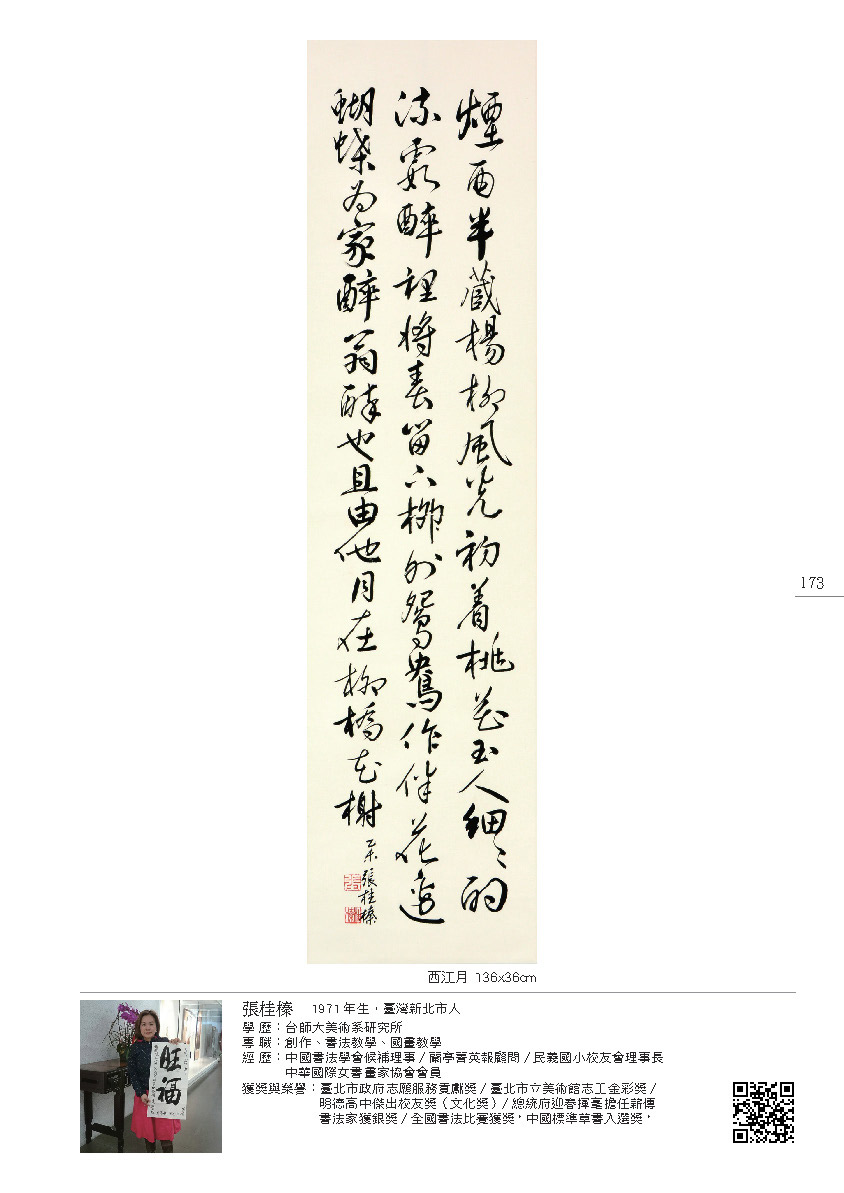 煙雨半藏楊柳風光初着桃花玉人細〻酌
流霞醉裡將春留下柳外鴛鴦作伴花邊
蝴蝶為家醉翁醉也且由他月在柳橋花榭
乙未 張桂榛
173
西江月 136x36cm
張桂榛 1971年生，臺灣新北市人
學 歷：台師大美術系研究所
專 職：創作、書法教學、國畫教學
經 歷：中國書法學會候補理事／蘭亭菁英報顧問／民義國小校友會理事長
中華國際女書畫家協會會員
獲獎與榮譽：臺北市政府志願服務貢獻獎／臺北市立美術館志工金彩獎／
明德高中傑出校友獎（文化獎）／總統府迎春揮毫擔任薪傳
書法家獲銀獎／全國書法比賽獲獎，中國標準草書入選獎，
旺福